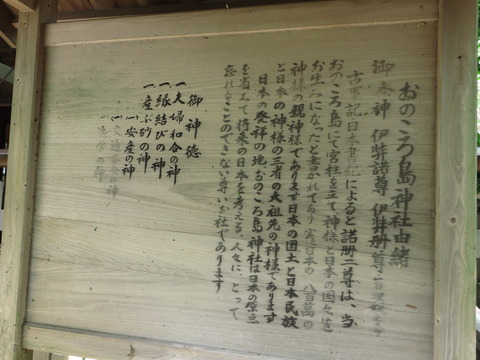 おのころ島神社由緒
御祭神 伊弉諾尊 伊弉册尊
古事記日本書紀によると諾册二尊は、当
おのころ島にて宮柱を立て神様と日本の国々を
お生みになったと書かれてあり実に日本の八百萬の
神様の親神様であります日本の国土と日本民族
と日本の神様の三者の大祖先の神様であります
日本の発祥の地おのころ島神社は日本の原点
を省みて将来の日本を考える人々にとって
忘れることのできない尊いお社であります
御神徳
一夫婦和合の神
一縁結びの神
一産ぶ砂の神
(一)安産の神